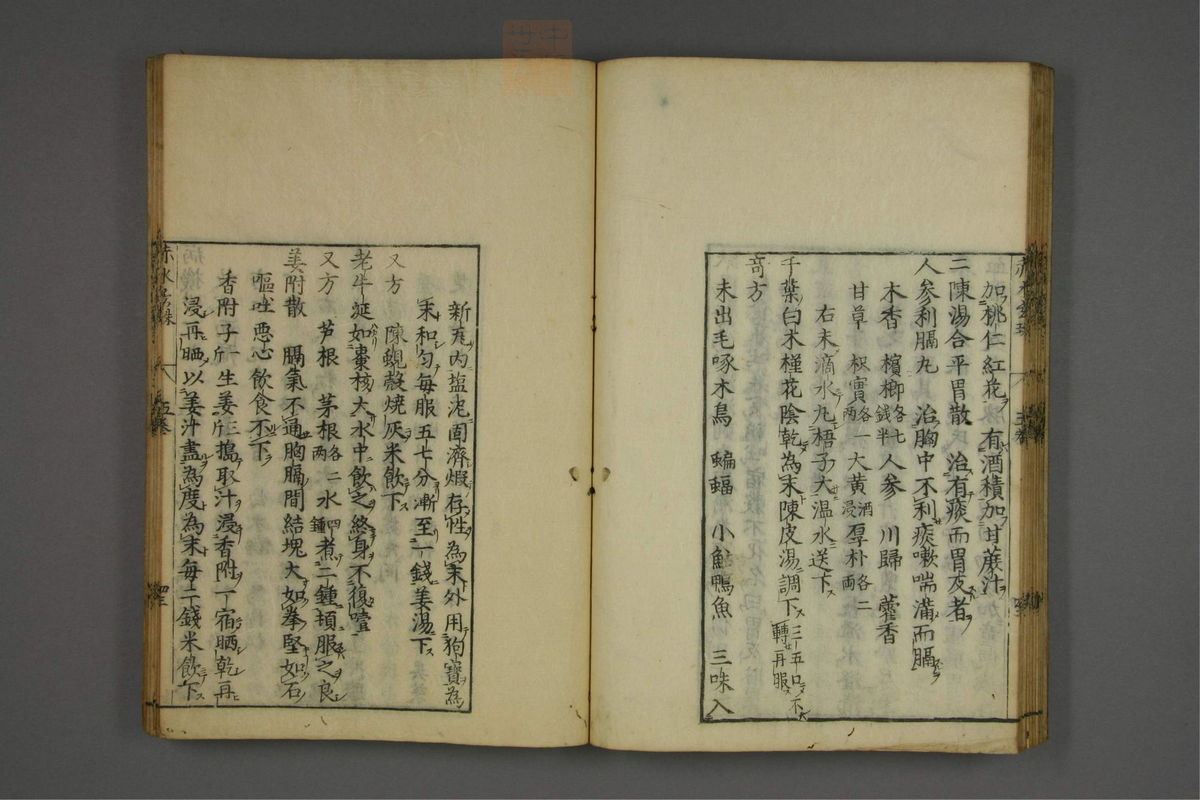 加桃仁紅花有酒積加甘蔗汁
二陳湯合平胃散治有痰而胃反者
人參利膈丸 治胸中不利痰嗽喘滿而膈
木香 檳榔各七錢半 人參 川歸 藿香
甘草 枳實各一兩 大黄酒浸 厚朴各二兩
右末滴水丸梧子大温水送下
千葉白木槿花陰乾為末陳皮湯調下三五口不轉再服
奇方
未出毛啄木鳥 蝙蝠 小鮎鴨魚 三味入
新瓦内塩泥固濟煅存性為末外用狗寶為
末和勻每服五七分漸至一錢姜湯下
又方 陳蜆殼燒灰米飲下
老牛涎如棗核大水中飲之終身不復噎
又方 芦根 茅根各二兩 水四鍾煮二鍾頓服之良
姜附散 膈氣不通胸膈間結塊大如拳堅如石
嘔吐惡心飲食不下
香附子一斤 生姜三斤搗取汁浸香附一宿晒乾再
浸再晒以姜汁盡為度為末每二錢米飲下